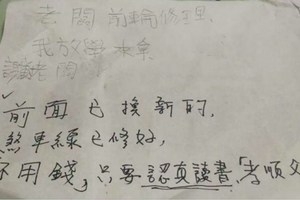 老闆 前輪修理
我放學來拿
謝謝老闆
前面已換新的,
煞車線已修好,
不用錢,只要認真讀書「孝順父